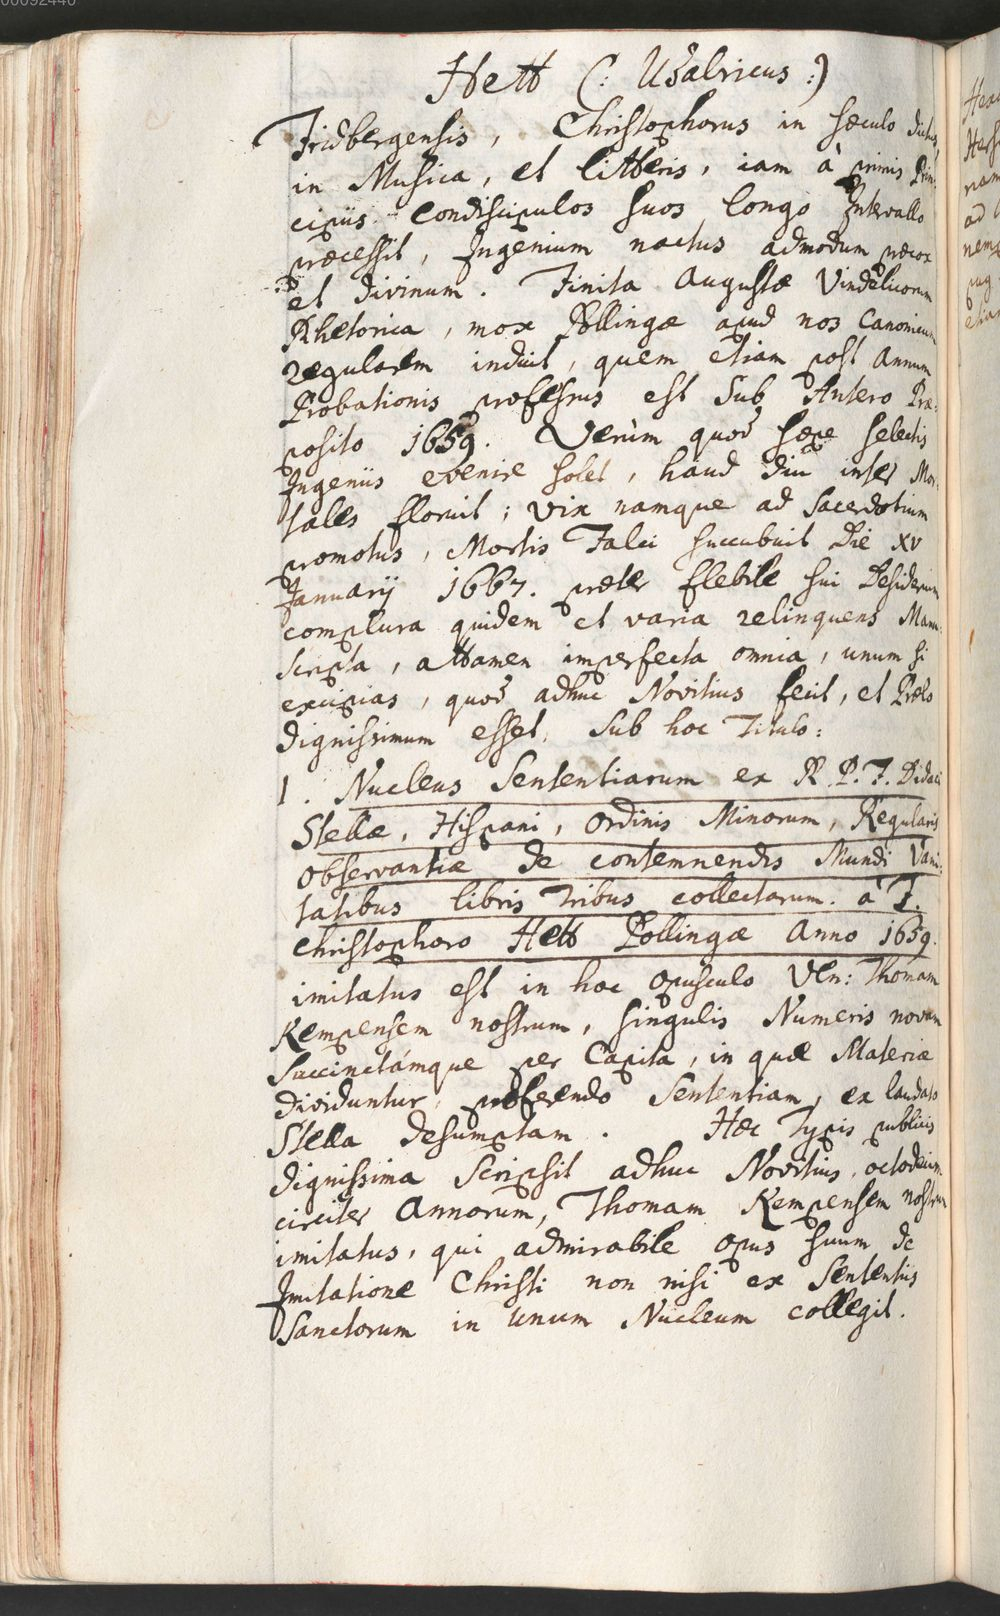 00092440
Hett (: Udalricus :)
Fridbergensis, Christophorus in sæculo dictus,
in Musica, et litteris, iam à primis Prin:
cipiis condiscipulos suos longo Intervallo
præcessit, Ingenium nactus admodum præcox
et divinum. Finita Augustæ Vindelicorum
Rhetorica, mox Pollingæ apud nos Canonicum
regularem induit, quem etiam post Annum
Probationis professus est sub Antero Præ:
posito 1659. Verùm quod sæpe selectis
Ingeniis evenire solet, haud diu inter Mor:
tales floruit; vix namque ad Sacerdotium
promotus, Mortis Falci succubuit Die XV
Januarij 1667. præter flebile sui Desiderium
complura quidem et varia relinquens Manu:
scripta, attamen imperfecta omnia, unum si
excipias, quod adhuc Novitius fecit, et Prælo
dignissimum esset, sub hoc Titulo:
1. Nucleus Sententiarum ex R. P. F. Didaci
Stellæ, Hispani, Ordinis Minorum, Regularis
Observantiæ de contemnendis Mundi Vani:
tatibus libris Tribus collectarum. à F.
Christophoro Hett Pollingæ Anno 1659.
imitatus est in hoc opusculo Ven: Thomam
Kempensem nostrum, singulis Numeris novam
succinctámque per Capita, in quæ Materiæ
dividuntur, proferendo Sententiam, ex laudato
Stella desumptam. Hæc Typis publicis
dignissima scripsit adhuc Novitius, octodecim
circiter Annorum, Thomam Kempensem nostrum
imitatus, qui admirabile opus suum de
Imitatione Christi non nisi ex Sententiis
Sanctorum in unum Nucleum collegit.